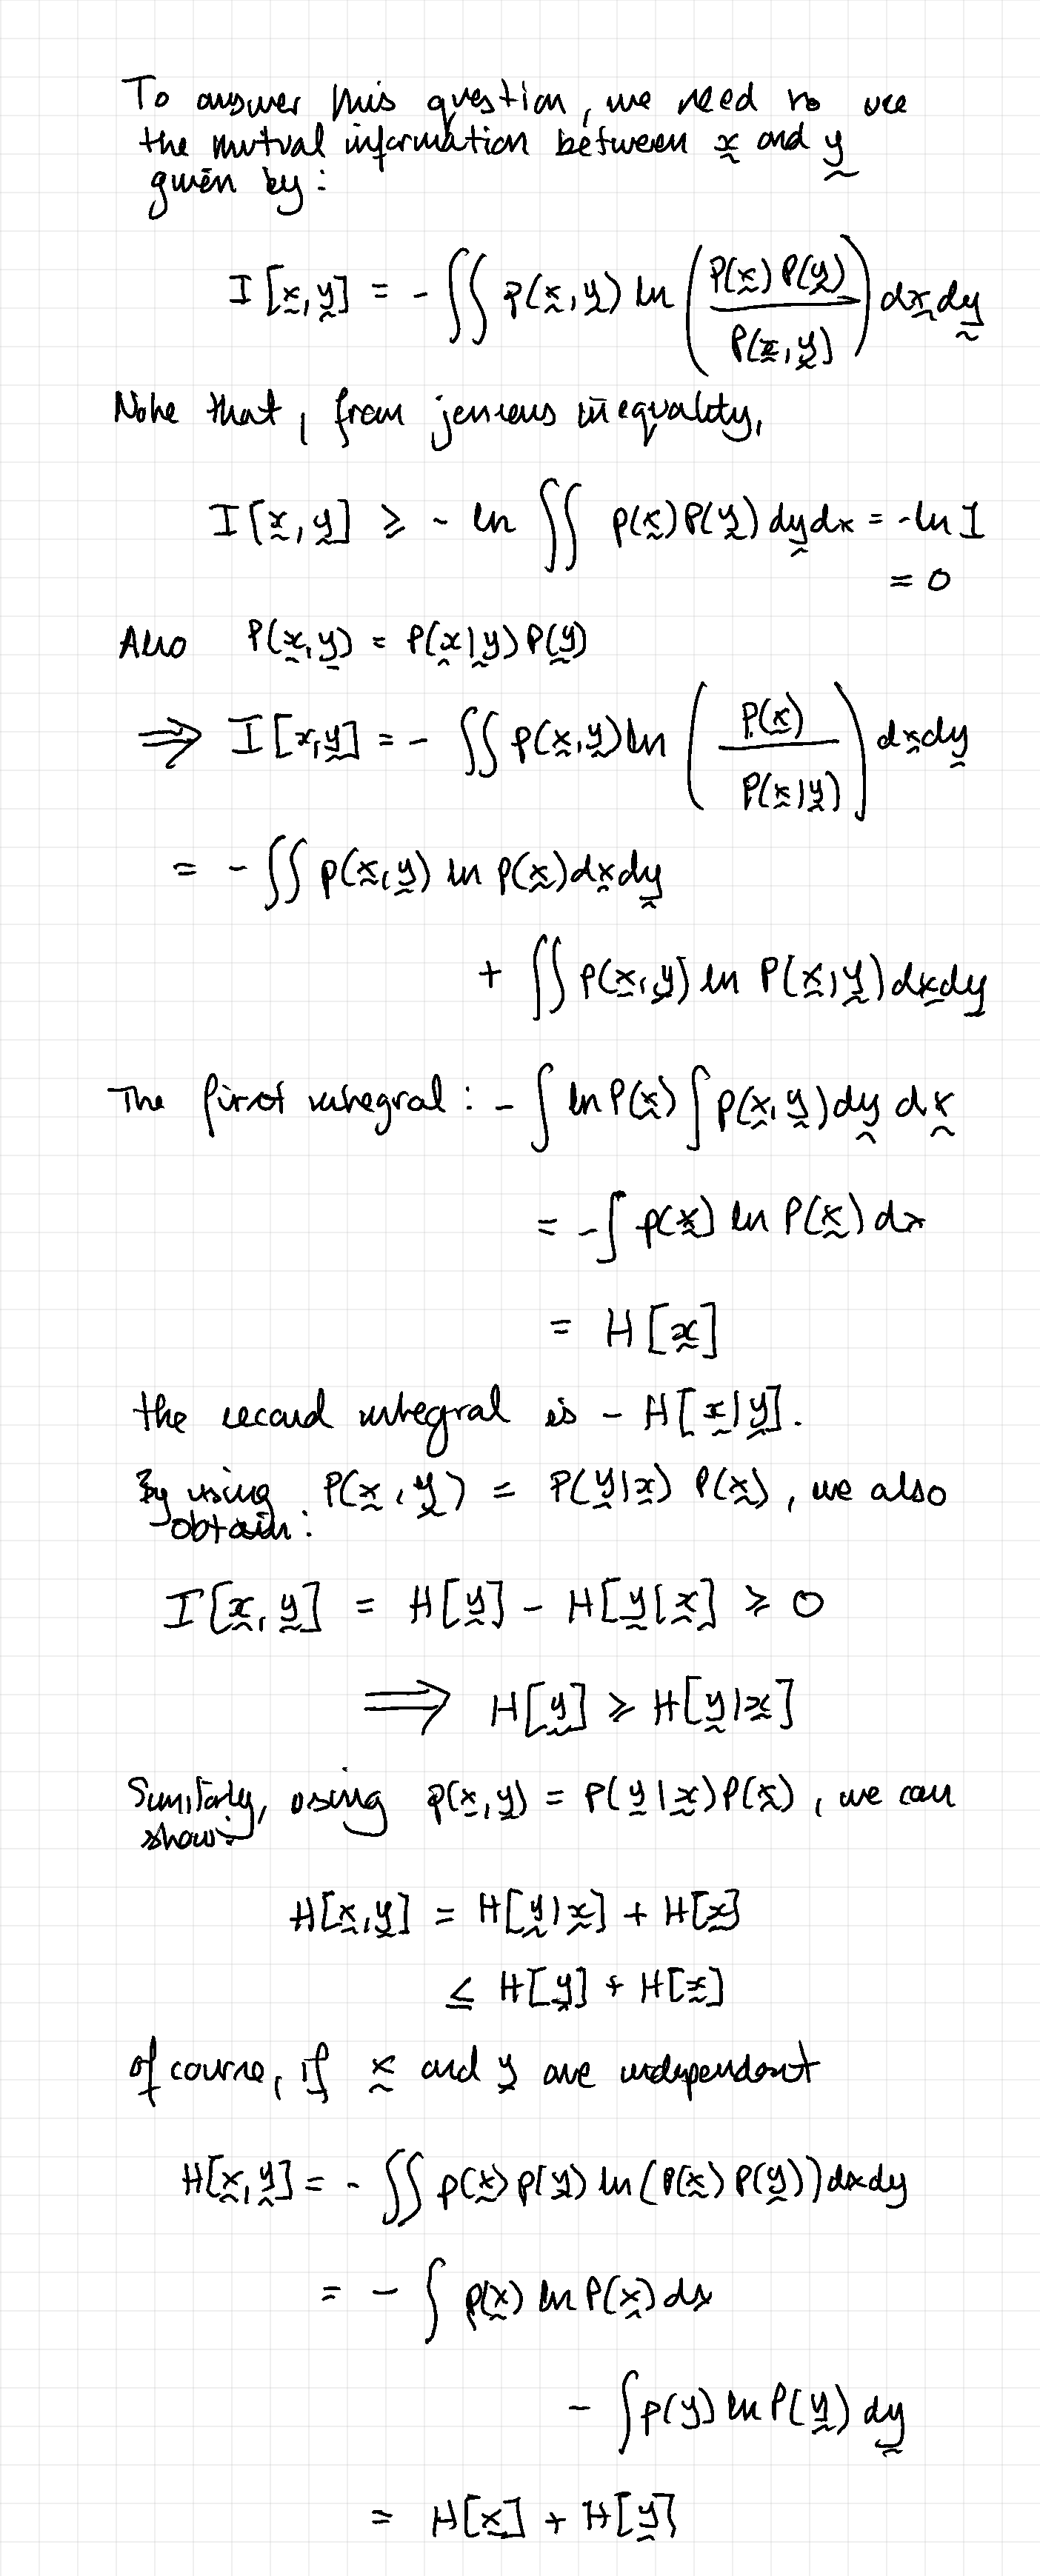 To answer this question, we need to use
the mutual information between x and y
given by:
I[x,y] = - ∬ p(x,y) ln ( P(x) P(y) / P(x,y) ) dx dy
Note that, from jensens inequality,
I[x,y] ≥ - ln ∬ p(x) P(y) dy dx = -ln 1
= 0
Also P(x,y) = P(x|y) P(y)
⇒ I[x,y] = - ∬ p(x,y) ln ( P(x) / P(x|y) ) dx dy
= - ∬ p(x,y) ln p(x) dx dy
+ ∬ p(x,y) ln P(x,y) dx dy
The first integral : - ∫ ln P(x) ∫ p(x,y) dy dx
= - ∫ p(x) ln P(x) dx
= H[x]
the second integral is - H[x|y].
By using P(x,y) = P(y|x) P(x), we also
obtain:
I[x,y] = H[y] - H[y|x] ≥ 0
⟹ H[y] ≥ H[y|x]
Similarly, using p(x,y) = P(y|x) P(x), we can
show:
H[x,y] = H[y|x] + H[x]
≤ H[y] + H[x]
of course, if x and y are independent
H[x,y] = - ∬ p(x) p(y) ln (P(x) P(y)) dx dy
= - ∫ p(x) ln P(x) dx
- ∫ p(y) ln P(y) dy
= H[x] + H[y]